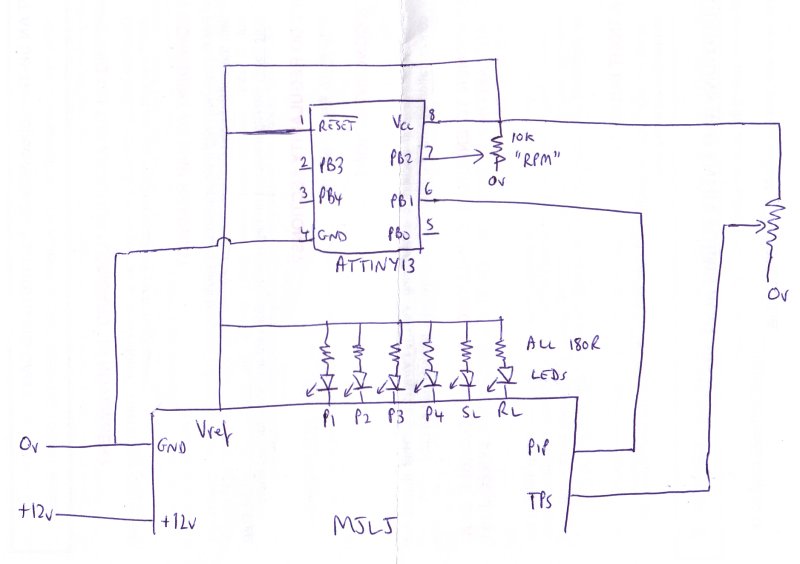 1 RESET Vcc 8
10k
2 PB3 PB2 7 "RPM"
0v
3 PB4 PB1 6
4 GND PB0 5
ATTINY13
0v
ALL 180R
LEDs
P1 P2 P3 P4 SL RL
Vref
0v GND PIP
TPS
+12v +12v
MJLJ